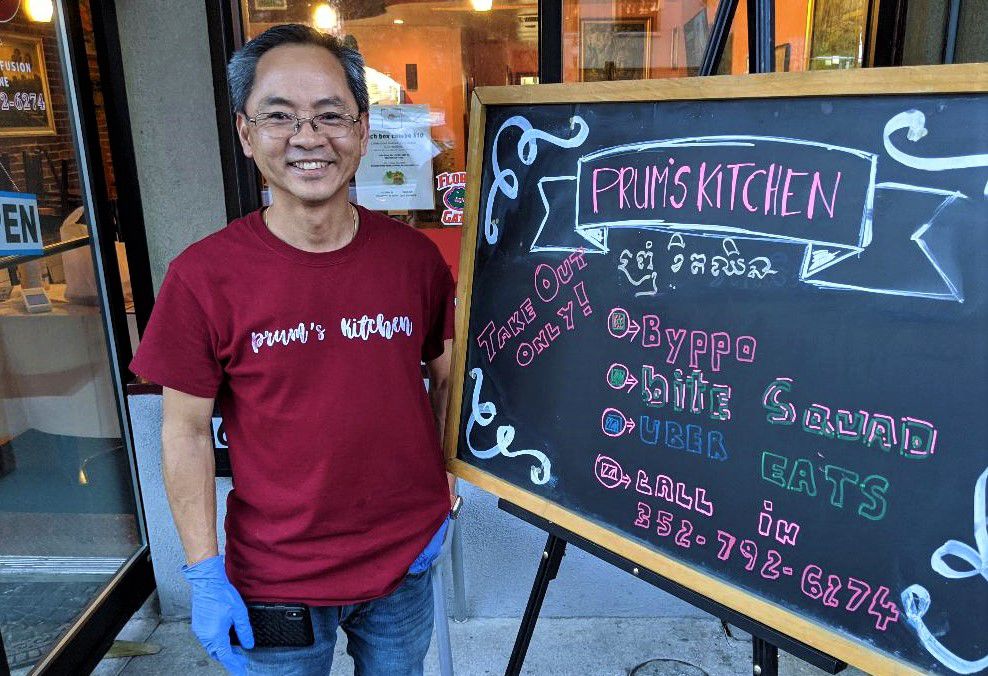 FUSION
NE
2-6274
PEN
ch box combo $10
FLOR
GAT
prum's kitchen
PRUM'S KITCHEN
ព្រុំ ខិតឈិន
TAKE OUT
ONLY!
Byppo
bite SQUAD
UBER EATS
CALL IN
352-792-6274